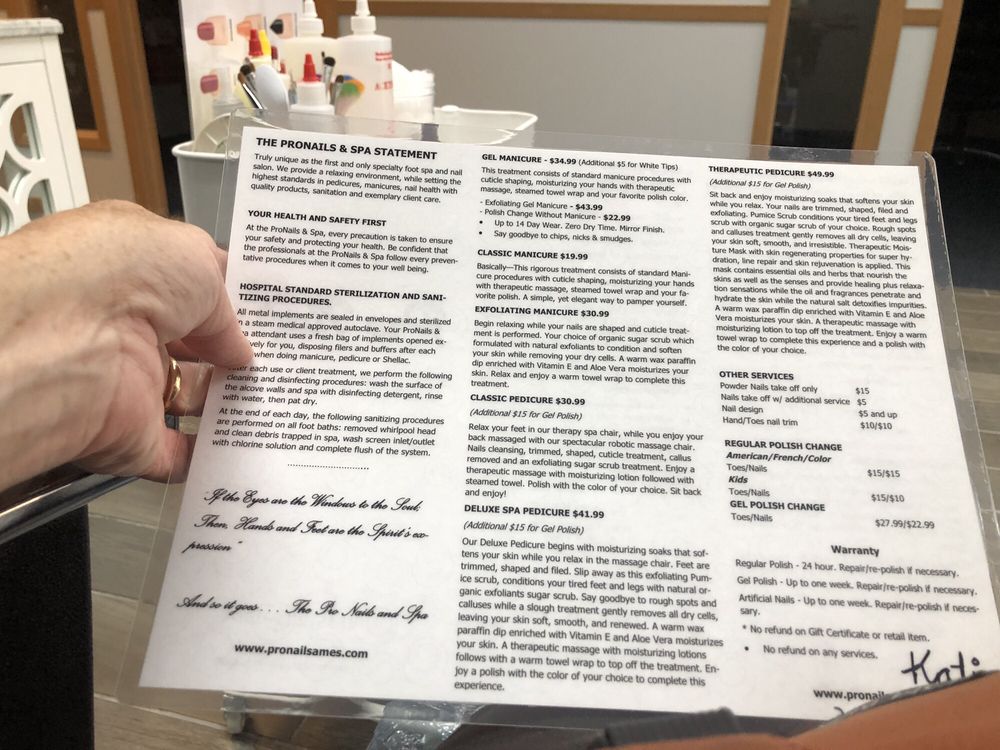 THE PRONAILS & SPA STATEMENT
Truly unique as the first and only specialty foot spa and nail
salon. We provide a relaxing environment, while setting the
highest standards in pedicures, manicures, nail health with
quality products, sanitation and exemplary client care.
YOUR HEALTH AND SAFETY FIRST
At the ProNails & Spa, every precaution is taken to ensure
your safety and protecting your health. Be confident that
the professionals at the ProNails & Spa follow every preven-
tative procedures when it comes to your well being.
HOSPITAL STANDARD STERILIZATION AND SANI-
TIZING PROCEDURES.
All metal implements are sealed in envelopes and sterilized
a steam medical approved autoclave. Your ProNails &
attendant uses a fresh bag of implements opened ex-
for you, disposing filers and buffers after each
when doing manicure, pedicure or Shellac.
each use or client treatment, we perform the following
cleaning and disinfecting procedures: wash the surface of
the alcove walls and spa with disinfecting detergent, rinse
with water, then pat dry.
At the end of each day, the following sanitizing procedures
are performed on all foot baths: removed whirlpool head
and clean debris trapped in spa, wash screen inlet/outlet
with chlorine solution and complete flush of the system.
If the Eyes are the Windows to the Soul;
Then, Hands and Feet are the Spirit's ex-
pression"
And so it goes . . . . The Pro Nails and Spa
www.pronailsames.com
GEL MANICURE - $34.99 (Additional $5 for White Tips)
This treatment consists of standard manicure procedures with
cuticle shaping, moisturizing your hands with therapeutic
massage, steamed towel wrap and your favorite polish color.
- Exfoliating Gel Manicure - $43.99
- Polish Change Without Manicure - $22.99
• Up to 14 Day Wear. Zero Dry Time. Mirror Finish.
• Say goodbye to chips, nicks & smudges.
CLASSIC MANICURE $19.99
Basically—This rigorous treatment consists of standard Mani-
cure procedures with cuticle shaping, moisturizing your hands
with therapeutic massage, steamed towel wrap and your fa-
vorite polish. A simple, yet elegant way to pamper yourself.
EXFOLIATING MANICURE $30.99
Begin relaxing while your nails are shaped and cuticle treat-
ment is performed. Your choice of organic sugar scrub which
formulated with natural exfoliants to condition and soften
your skin while removing your dry cells. A warm wax paraffin
dip enriched with Vitamin E and Aloe Vera moisturizes your
skin. Relax and enjoy a warm towel wrap to complete this
treatment.
CLASSIC PEDICURE $30.99
(Additional $15 for Gel Polish)
Relax your feet in our therapy spa chair, while you enjoy your
back massaged with our spectacular robotic massage chair.
Nails cleansing, trimmed, shaped, cuticle treatment, callus
removed and an exfoliating sugar scrub treatment. Enjoy a
therapeutic massage with moisturizing lotion followed with
steamed towel. Polish with the color of your choice. Sit back
and enjoy!
DELUXE SPA PEDICURE $41.99
(Additional $15 for Gel Polish)
Our Deluxe Pedicure begins with moisturizing soaks that sof-
tens your skin while you relax in the massage chair. Feet are
trimmed, shaped and filed. Slip away as this exfoliating Pum-
ice scrub, conditions your tired feet and legs with natural or-
ganic exfoliants sugar scrub. Say goodbye to rough spots and
calluses while a slough treatment gently removes all dry cells,
leaving your skin soft, smooth, and renewed. A warm wax
paraffin dip enriched with Vitamin E and Aloe Vera moisturizes
your skin. A therapeutic massage with moisturizing lotions
follows with a warm towel wrap to top off the treatment. En-
joy a polish with the color of your choice to complete this
experience.
THERAPEUTIC PEDICURE $49.99
(Additional $15 for Gel Polish)
Sit back and enjoy moisturizing soaks that softens your skin
while you relax. Your nails are trimmed, shaped, filed and
exfoliating. Pumice Scrub conditions your tired feet and legs
scrub with organic sugar scrub of your choice. Rough spots
and calluses treatment gently removes all dry cells, leaving
your skin soft, smooth, and irresistible. Therapeutic Mois-
ture Mask with skin regenerating properties for super hy-
dration, line repair and skin rejuvenation is applied. This
mask contains essential oils and herbs that nourish the
skins as well as the senses and provide healing plus relaxa-
tion sensations while the oil and fragrances penetrate and
hydrate the skin while the natural salt detoxifies impurities.
A warm wax paraffin dip enriched with Vitamin E and Aloe
Vera moisturizes your skin. A therapeutic massage with
moisturizing lotion to top off the treatment. Enjoy a warm
towel wrap to complete this experience and a polish with
the color of your choice.
OTHER SERVICES
Powder Nails take off only $15
Nails take off w/ additional service $5
Nail design $5 and up
Hand/Toes nail trim $10/$10
REGULAR POLISH CHANGE
American/French/Color
Toes/Nails $15/$15
Kids
Toes/Nails $15/$10
GEL POLISH CHANGE
Toes/Nails $27.99/$22.99
Warranty
Regular Polish - 24 hour. Repair/re-polish if necessary.
Gel Polish - Up to one week. Repair/re-polish if necessary.
Artificial Nails - Up to one week. Repair/re-polish if neces-
sary.
* No refund on Gift Certificate or retail item.
• No refund on any services.
www.pronail